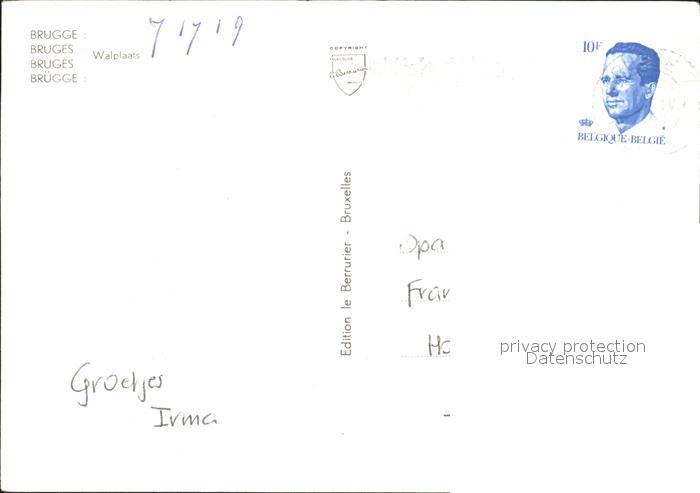 BRUGGE :
BRUGES :
BRUGES :
BRÜGGE :
Walplaats
7 17 19
COPYRIGHT
10F
BELGIQUE-BELGIË
Edition le Berrurier - Bruxelles
Opa
Fran
Ho
privacy protection
Datenschutz
Groetjes
Irma